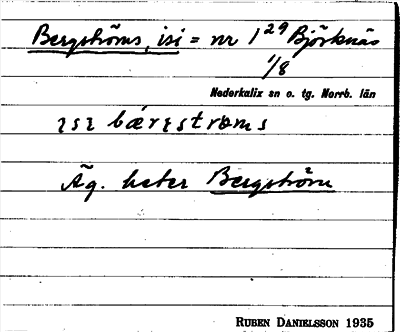 Bergströms, isi = nr 1²⁹ Björknäs
1/8
Nederkalix sn o. tg. Norrb. län
Äg. heter Bergström
RUBEN DANIELSSON 1935